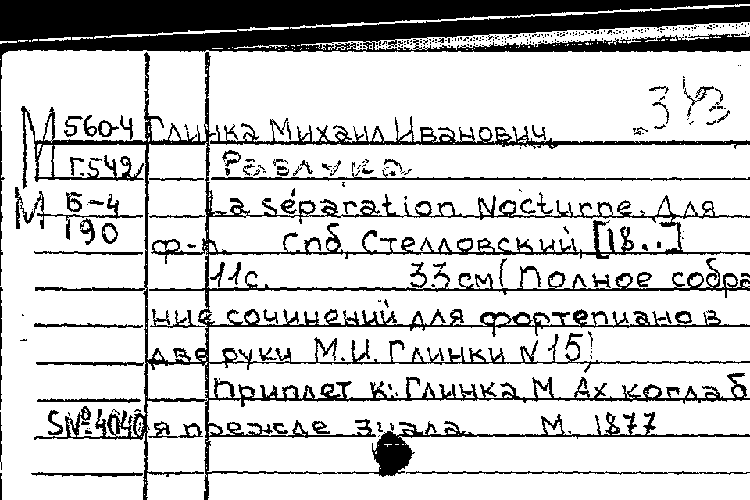 343
М 560-4 Глинка Михаил Иванович.
Г.542 Разлука
М Б-4 La séparation. Nocturne. Для
190 ф-п. Спб, Стелловский, [18..]
11с. 33 см (Полное собра
ние сочинений для фортепиано в
две руки М.И. Глинки N 15)
Приплет к: Глинка, М. Ах когда б
SNº4040 я прежде знала. М. 1877